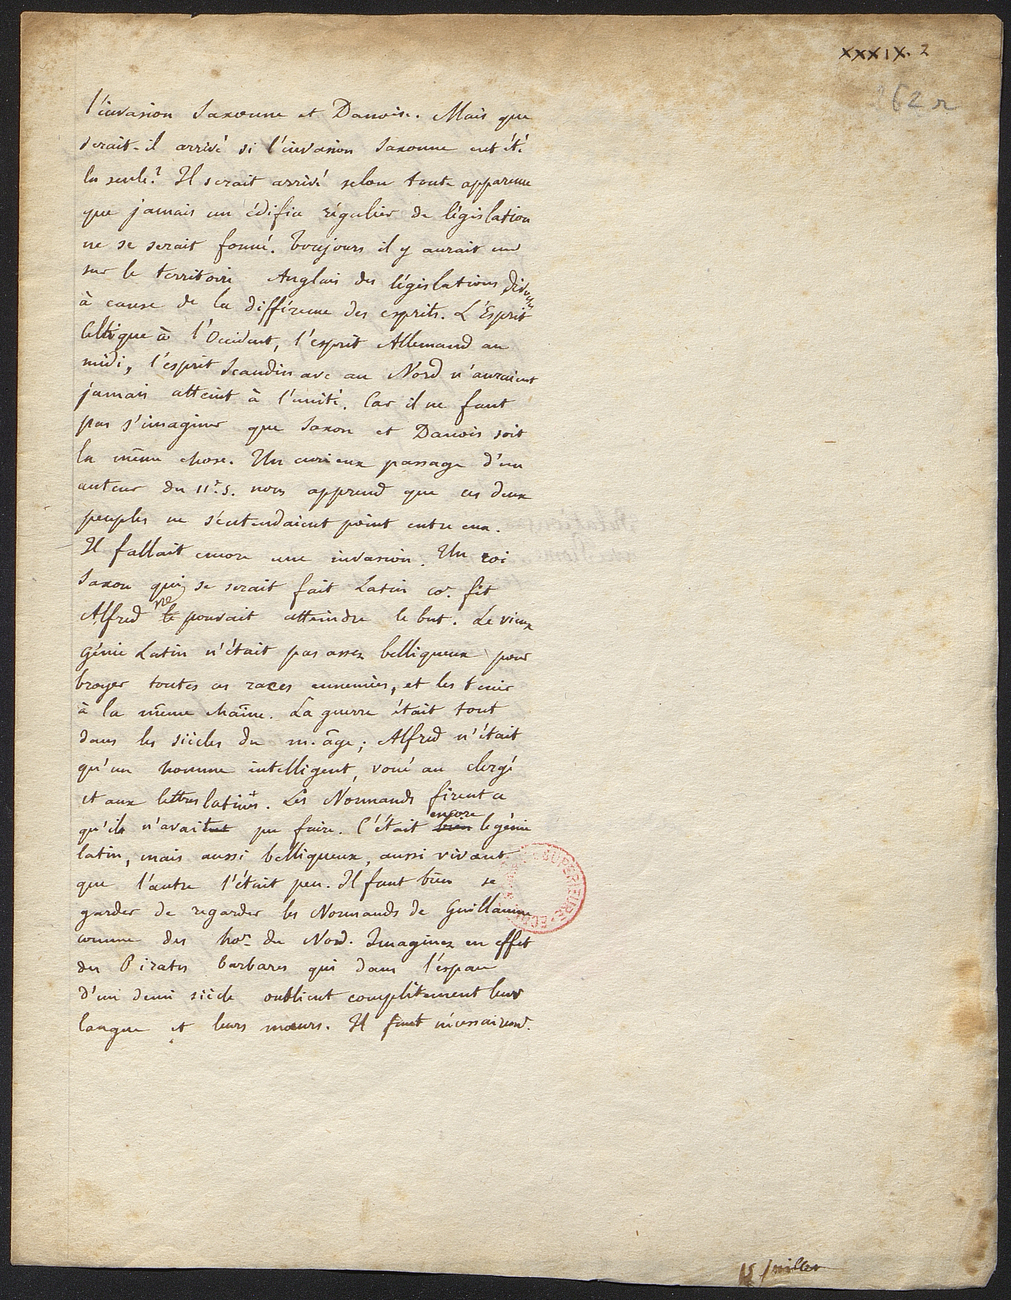 XXXIX. 2
162 r
l'invasion Saxonne et Danoise. Mais que
serait-il arrivé si l'invasion Saxonne eut été
la seule? Il serait arrivé selon toute apparence
que jamais un édifice régulier de législation
ne se serait formé. Toujours il y aurait eu
sur le territoire Anglais des législations diverses
à cause de la différence des esprits. L'Esprit
Celtique à l'Occident, l'esprit Allemand au
midi, l'esprit Scandinave au Nord n'auraient
jamais atteint à l'unité. Car il ne faut
pas s'imaginer que Saxon et Danois soit
la même chose. Un curieux passage d'un
auteur du 11e. s. nous apprend que ces deux
peuples ne s'entendaient point entre eux.
Il fallait encore une invasion. Un roi
Saxon qui se serait fait Latin co. fit
Alfred ne pouvait atteindre le but. Le vieux
génie Latin n'était pas assez belliqueux pour
broyer toutes ces races ennemies, et les tenir
à la même chaîne. La guerre était tout
dans les siècles du m. âge; Alfred n'était
qu'un homme intelligent, voué au clergé
et aux lettres latines. Les Normands firent ce
qu'il n'avait pu faire. C'était bien encore le génie
latin, mais aussi belliqueux, aussi vivant
que l'autre l'était peu. Il faut bien se
garder de regarder les Normands de Guillaume
comme des hoes du Nord. Imaginez en effet
des Pirates barbares qui dans l'espace
d'un demi siècle oublient complètement leur
langue et leurs mœurs. Il faut nécessairemt.
SUPÉRIEURE · ÉCOLE
15 juillet